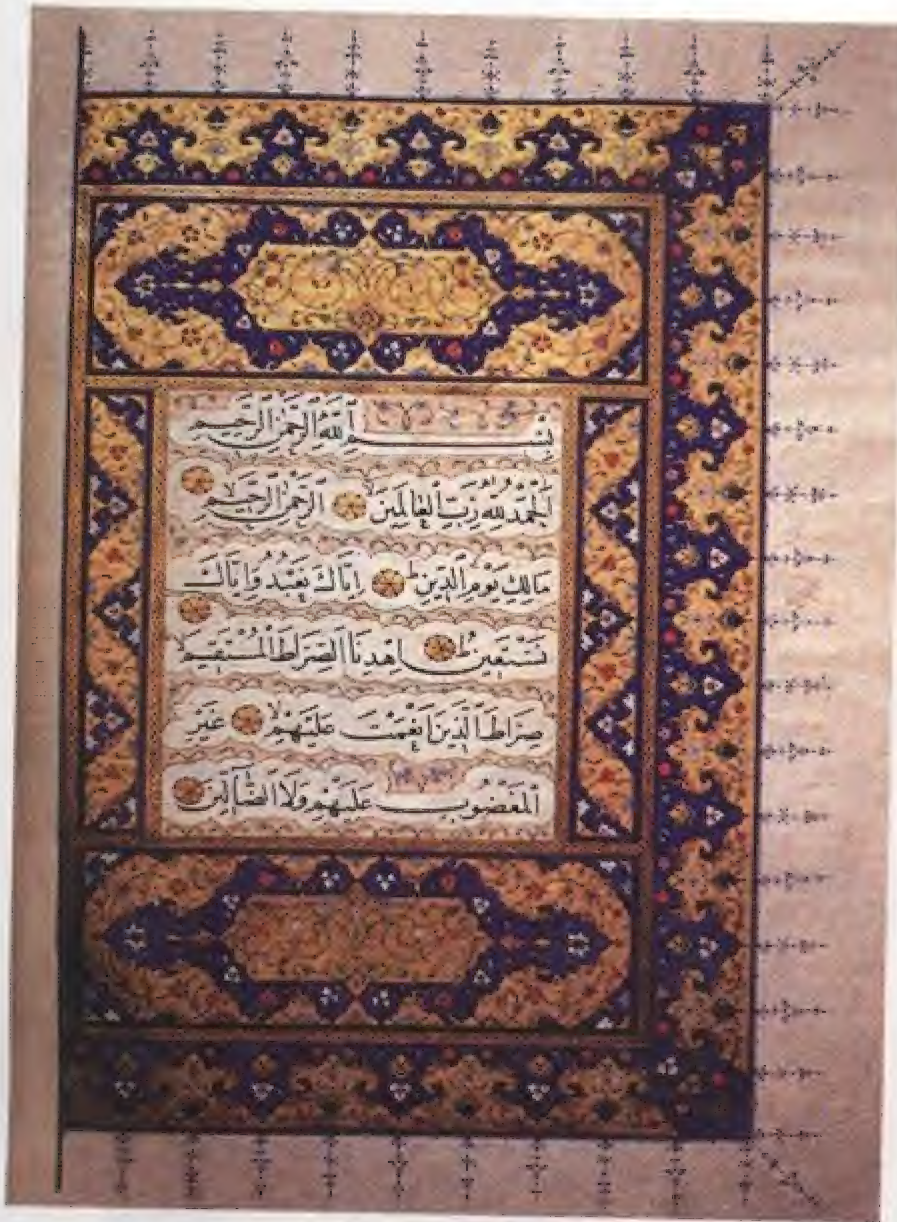 بِسْمِ ٱللَّهِ ٱلرَّحْمَٰنِ ٱلرَّحِيمِ
اَلْحَمْدُ لِلّٰهِ رَبِّ ٱلْعَالَمِينَۙ اَلرَّحْمٰنِ ٱلرَّحِيمِۙ
مَالِكِ يَوْمِ ٱلدِّينِۜ اِيَّاكَ نَعْبُدُ وَاِيَّاكَ
نَسْتَعِينُۜ اِهْدِنَا ٱلصِّرَاطَ ٱلْمُسْتَقِيمَۙ
صِرَاطَ ٱلَّذِينَ اَنْعَمْتَ عَلَيْهِمْۙ غَيْرِ
ٱلْمَغْضُوبِ عَلَيْهِمْ وَلَا ٱلضَّٓالِّينَ